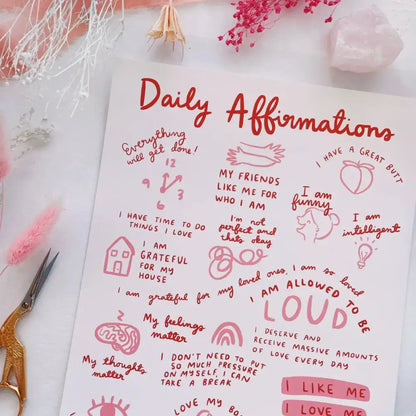 Daily Affirmations
Everything
will get done!
12
3
6
9
MY FRIENDS
LIKE ME FOR
WHO I AM
I HAVE A GREAT BUTT
I am
funny
I am
intelligent
I HAVE TIME TO DO
THINGS I LOVE
I'm not
perfect and
thats okay
I AM
GRATEFUL
FOR MY
HOUSE
I am grateful for my loved ones, I am so loved
I AM ALLOWED TO BE
LOUD
My feelings
matter
I DESERVE AND
RECEIVE MASSIVE AMOUNTS
OF LOVE EVERY DAY
My thoughts
matter
I DON'T NEED TO PUT
SO MUCH PRESSURE
ON MYSELF, I CAN
TAKE A BREAK
I LIKE ME
I LOVE ME
LOVE MY